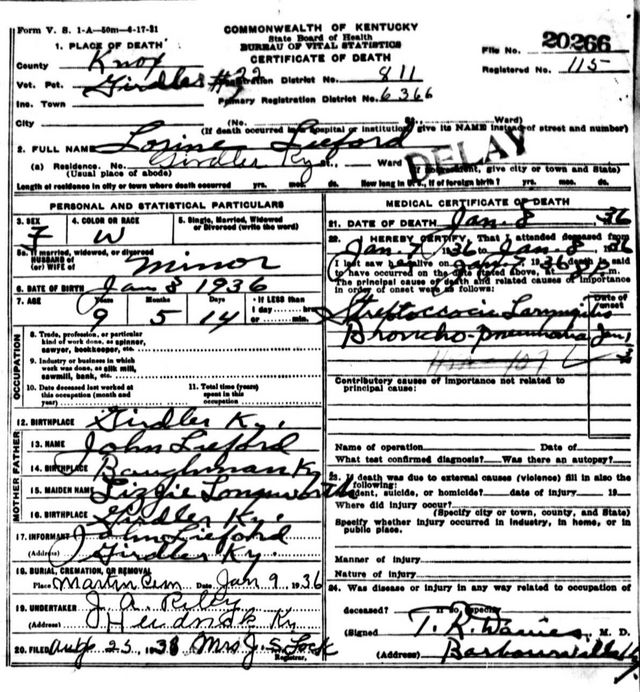 Form V. S. 1-A—50m—6-17-31
COMMONWEALTH OF KENTUCKY
State Board of Health
BUREAU OF VITAL STATISTICS
CERTIFICATE OF DEATH
File No. 20266
Registered No. 115
1. PLACE OF DEATH
County Knox
Vot. Pct. Girdler #22
Registration District No. 811
Inc. Town
Primary Registration District No. 6366
City (No. St., Ward)
(If death occurred in a hospital or institution, give its NAME instead of street and number)
2. FULL NAME Lorine Lieford
(a) Residence. No. Girdler Ky St., Ward
DELAY
(Usual place of abode) (If nonresident, give city or town and State)
Length of residence in city or town where death occurred yrs. mos. ds. How long in U. S., if of foreign birth? yrs. mos. ds.
PERSONAL AND STATISTICAL PARTICULARS
3. SEX F
4. COLOR OR RACE W
5. Single, Married, Widowed or Divorced (write the word)
5a. If married, widowed, or divorced
HUSBAND of
(or) WIFE of minor
6. DATE OF BIRTH Jan 3 1936
7. AGE Years Months Days If LESS than
1 day hrs.
or min.
9 5 14
OCCUPATION
8. Trade, profession, or particular kind of work done, as spinner, sawyer, bookkeeper, etc.
9. Industry or business in which work was done, as silk mill, sawmill, bank, etc.
10. Date deceased last worked at this occupation (month and year)
11. Total time (years) spent in this occupation
12. BIRTHPLACE Girdler Ky.
FATHER
13. NAME John Lieford
14. BIRTHPLACE Baughman Ky
MOTHER
15. MAIDEN NAME Lizzie Longworth
16. BIRTHPLACE Girdler Ky.
17. INFORMANT John Lieford
(Address) Girdler Ky.
18. BURIAL, CREMATION, OR REMOVAL
Place Martin Cem Date Jan 9 1936
19. UNDERTAKER J. A. Riley
(Address) Ky
20. FILED Aug 25 1938 Mrs J. S. Lock
Registrar.
MEDICAL CERTIFICATE OF DEATH
21. DATE OF DEATH Jan 8 36
22. I HEREBY CERTIFY, That I attended deceased from
Jan 7 1936 to Jan 8 1936
I last saw h alive on Jan 7 1936 death is said
to have occurred on the date stated above, at 8 m.
The principal cause of death and related causes of importance in order of onset were as follows:
Date of onset
Streptococcic Laryngitis
Broncho-pneumonia Jan 1
107
Contributory causes of importance not related to principal cause:
Name of operation Date of
What test confirmed diagnosis? Was there an autopsy?
23. If death was due to external causes (violence) fill in also the following:
Accident, suicide, or homicide? date of injury 19
Where did injury occur?
(Specify city or town, county, and State)
Specify whether injury occurred in industry, in home, or in public place.
Manner of injury
Nature of injury
24. Was disease or injury in any way related to occupation of deceased? If so, specify
(Signed) T. R. Davies, M. D.
(Address) Barbourville Ky